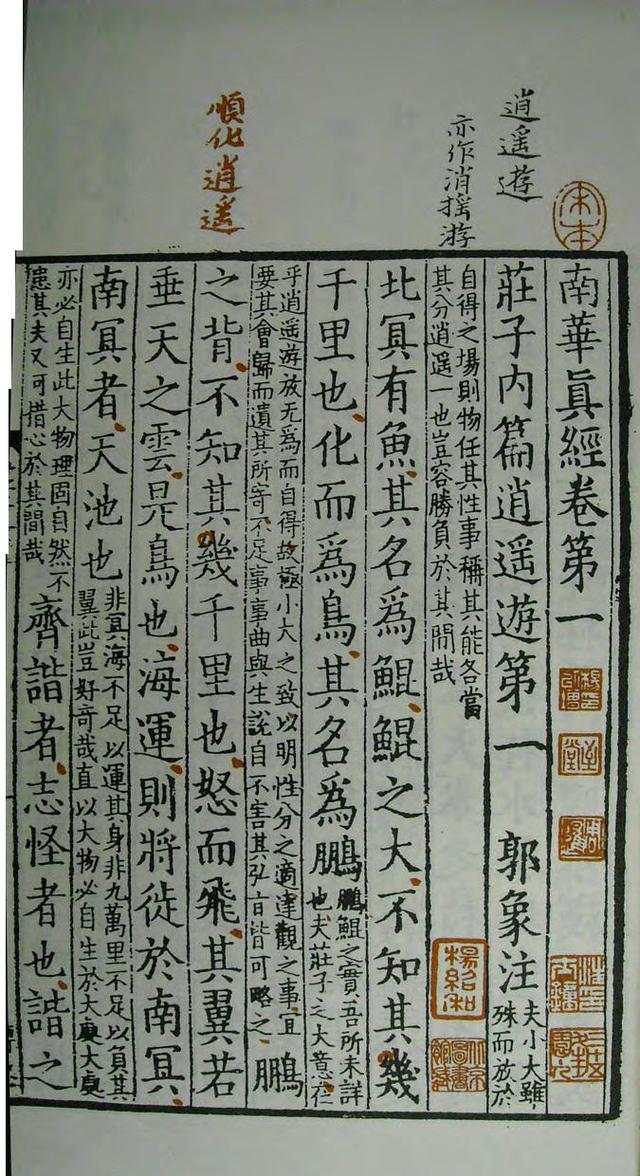 宋本
逍遥遊
亦作消揺游
順化逍遥
南華眞經卷第一
莊子内篇逍遥遊第一 郭象注 夫小大雖
殊而放於
自得之場則物任其性事稱其能各當
其分逍遥一也豈容勝負於其間哉
楊紹和
北冥有魚其名爲鯤鯤之大不知其幾
千里也化而爲鳥其名爲鵬 鵬鯤之實吾所未詳
也夫莊子之大意在
乎逍遥遊放无爲而自得故極小大之致以明性分之適達觀之事宜
要其會歸而遺其所寄不足事事曲與生說自不害其弘旨皆可略之 鵬
之背不知其幾千里也怒而飛其翼若
垂天之雲是鳥也海運則將徙於南冥
南冥者天池也 非冥海不足以運其身非九萬里不足以負其
翼此豈好奇哉直以大物必自生於大處大處
亦必自生此大物理固自然不
患其失又可措心於其間哉 齊諧者志怪者也諧之